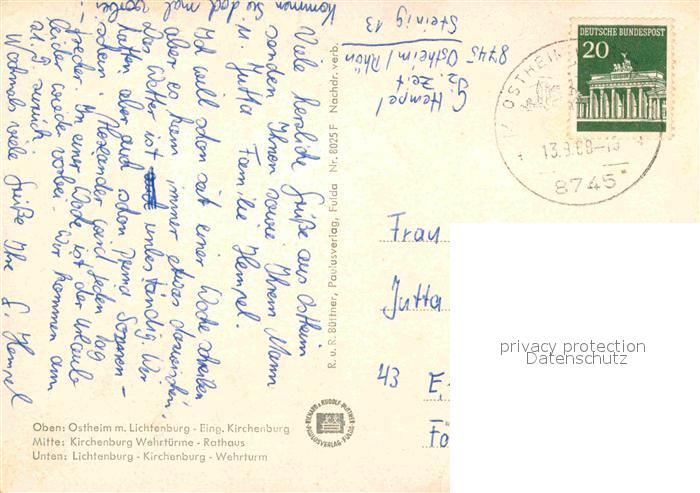 Viele herzliche Grüße aus Ostheim
senden Ihnen sowie Ihrem Mann
u. Jutta Familie Hempel.
Ich will schon seit einer Woche schreiben
aber es kam immer etwas dazwischen.
Das Wetter ist unbeständig. Wir
hatten aber auch schon Sonnen-
schein. wird jeden Tag
In einer Woche ist der Urlaub
leider wieder vorbei. Wir kommen am
21.9. zurück.
Nochmals viele Grüße Ihre G. Hempel
Kommen Sie doch mal vorbei
G. Hempel
z. Zeit
8745 Ostheim / Rhön
Steinig 13
R. u. R. Büttner, Paulusverlag, Fulda Nr. 8025 F Nachdr. verb.
DEUTSCHE BUNDESPOST
20
OSTHEIM
13.9.68-13
8745
Frau
Jutta
43 E
privacy protection
Datenschutz
RICHARD u. RUDOLF BÜTTNER
PAULUSVERLAG FULDA
Oben: Ostheim m. Lichtenburg - Eing. Kirchenburg
Mitte: Kirchenburg Wehrtürme - Rathaus
Unten: Lichtenburg - Kirchenburg - Wehrturm